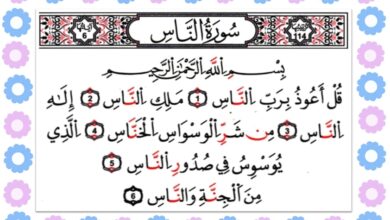 آياتها 6 سُورَةُ النَّاسِ 114
بِسْمِ اللَّهِ الرَّحْمَٰنِ الرَّحِيمِ
قُلْ أَعُوذُ بِرَبِّ النَّاسِ 1 مَلِكِ النَّاسِ 2 إِلَٰهِ
النَّاسِ 3 مِن شَرِّ الْوَسْوَاسِ الْخَنَّاسِ 4 الَّذِي
يُوَسْوِسُ فِي صُدُورِ النَّاسِ 5
مِنَ الْجِنَّةِ وَالنَّاسِ 6